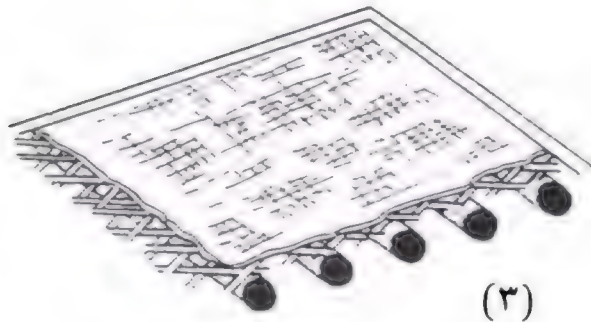 (٣)